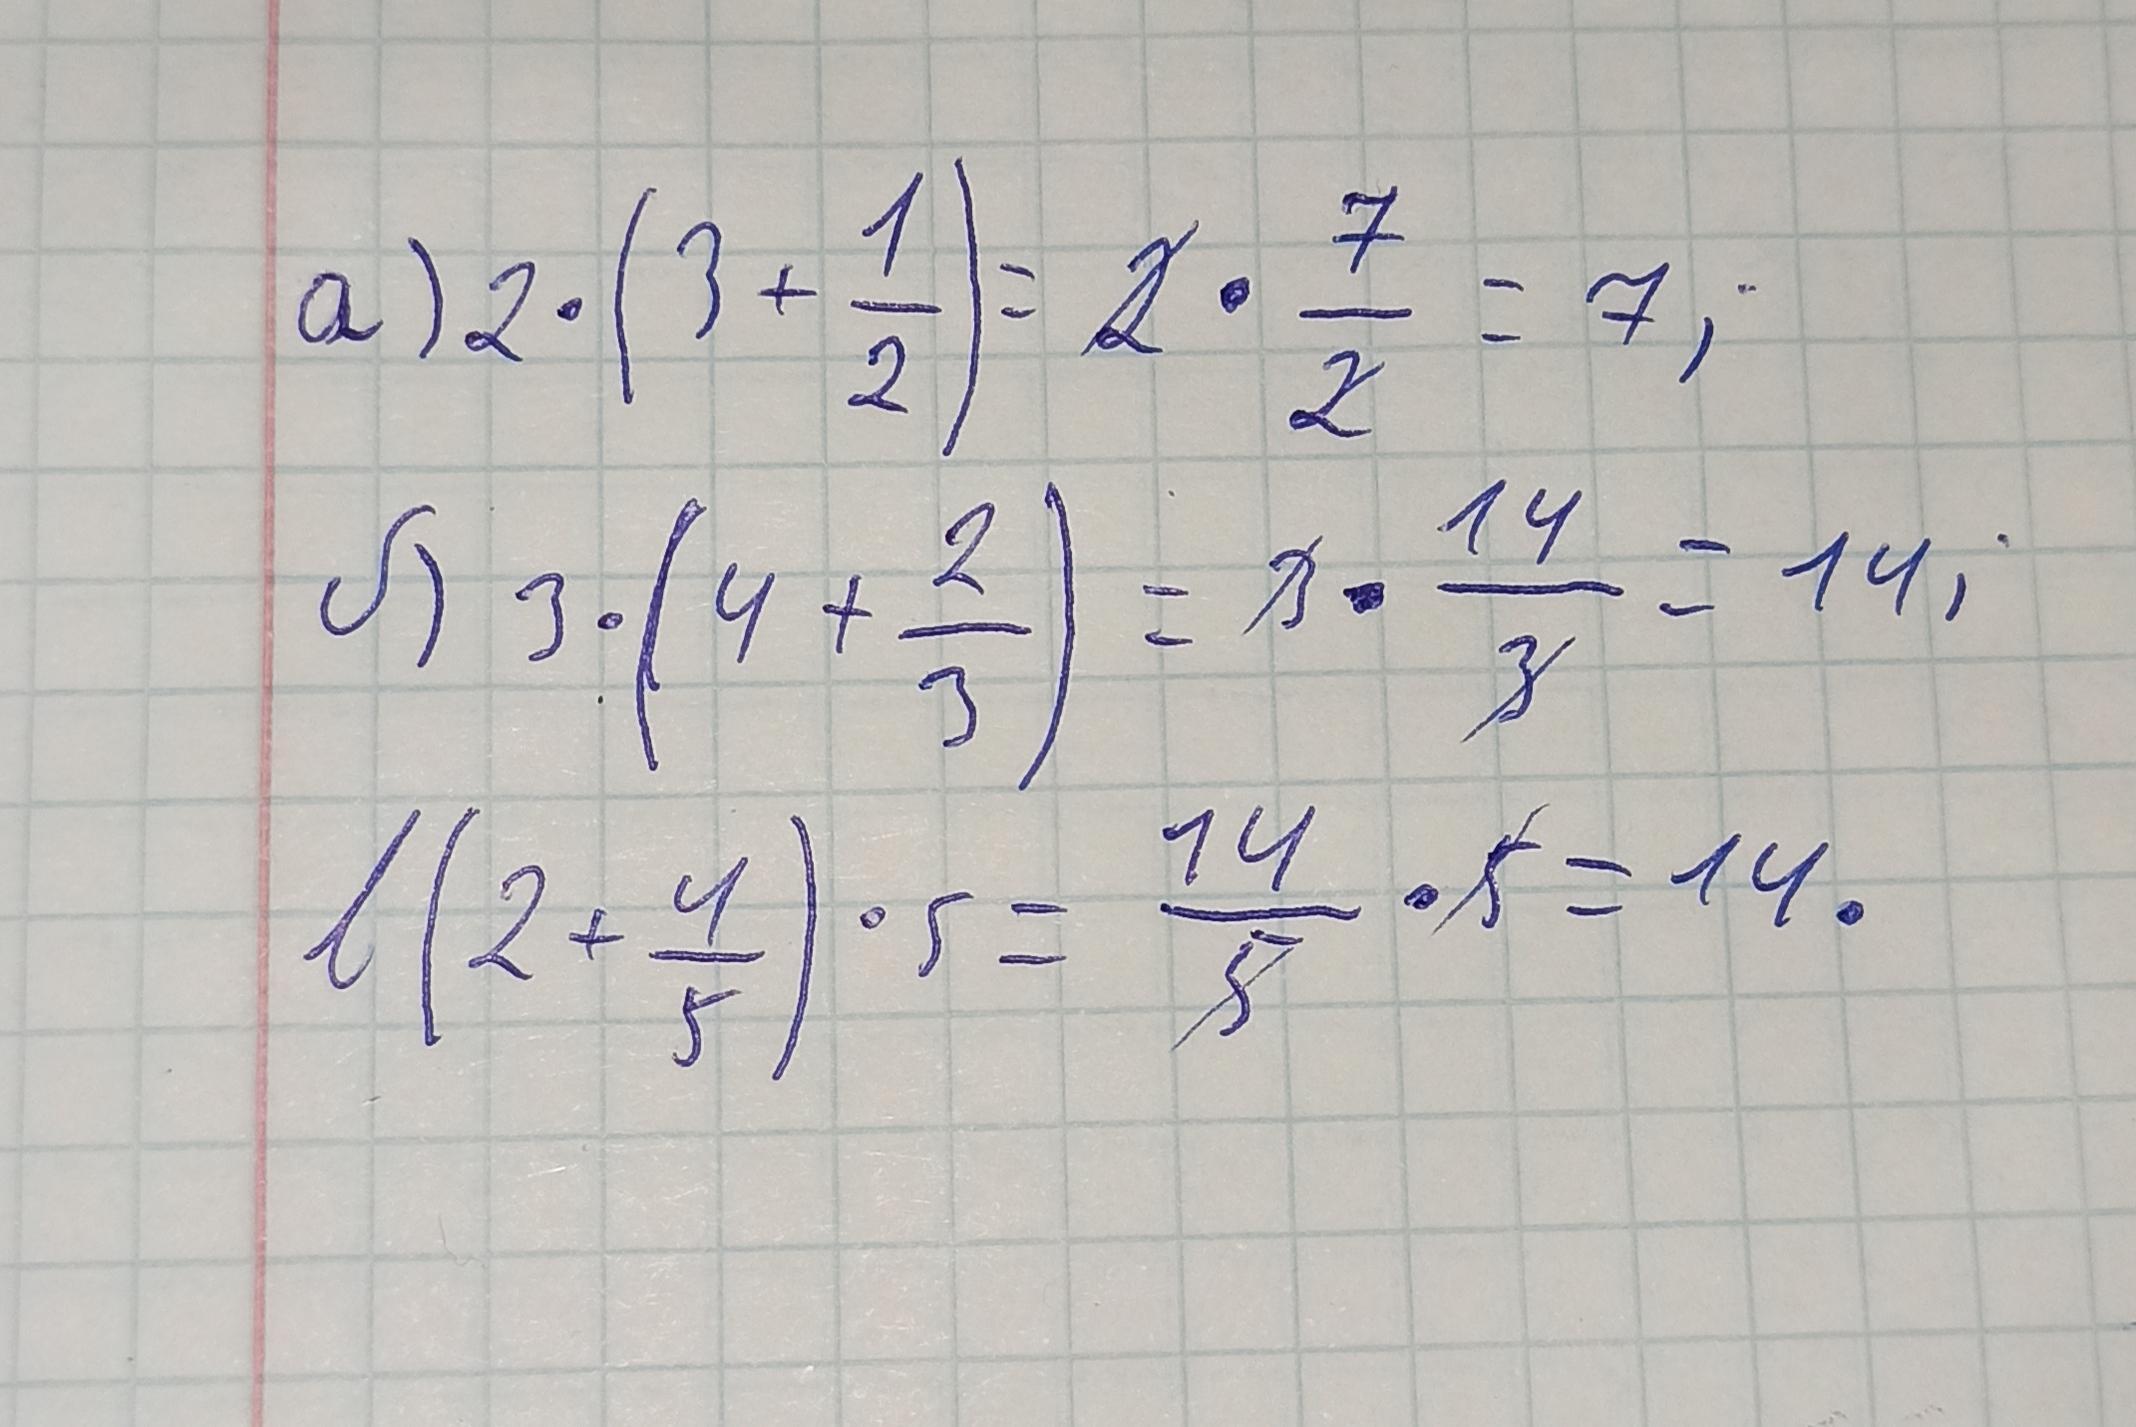 а) 2 · (3 + 1/2) = 2 · 7/2 = 7;
б) 3 · (4 + 2/3) = 3 · 14/3 = 14;
в (2 + 4/5) · 5 = 14/5 · 5 = 14.